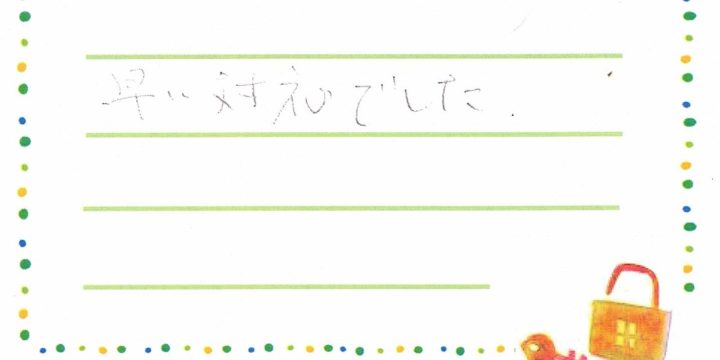 早い対応でした.